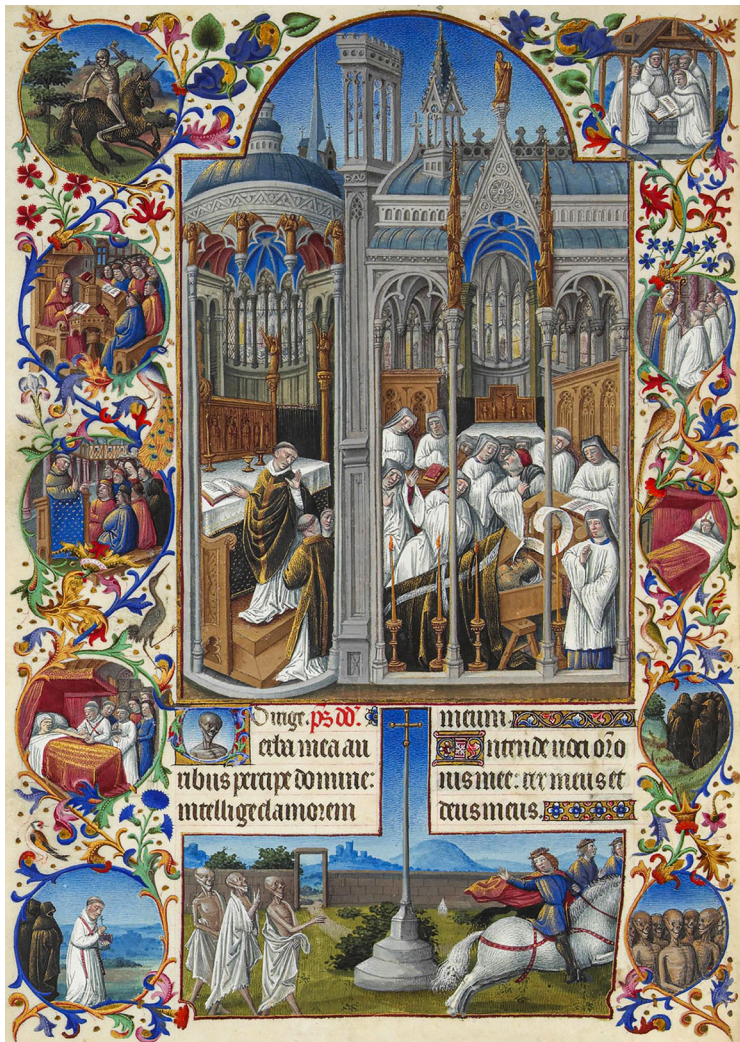 Dirige. ps dd'.
Verba mea au
ribus percipe domine:
intellige clamorem
meum.
Intende uoci orō
nis mee: rex meus et
deus meus.